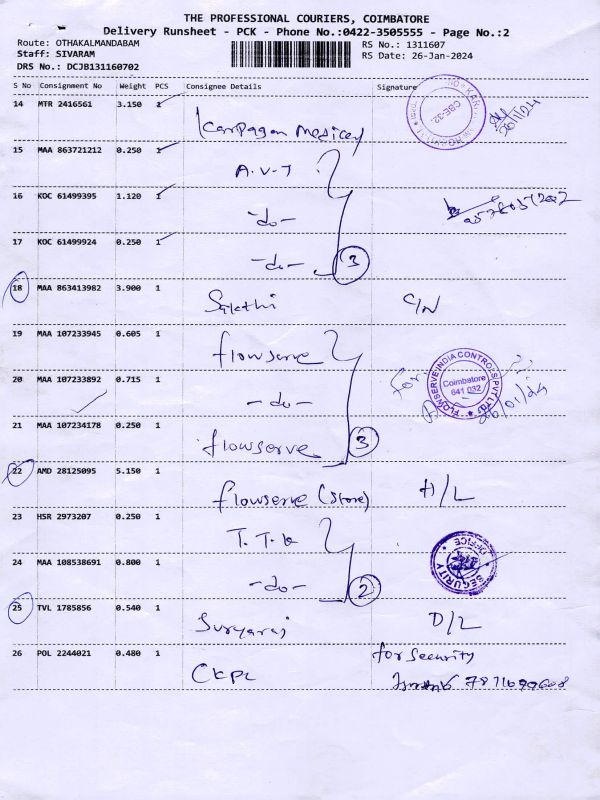 THE PROFESSIONAL COURIERS, COIMBATORE
Delivery Runsheet - PCK - Phone No.:0422-3505555 - Page No.:2
Route: OTHAKALMANDABAM
Staff: SIVARAM
DRS No.: DCJB131160702
RS No.: 1311607
RS Date: 26-Jan-2024
S No Consignment No Weight PCS Consignee Details Signature
14 MTR 2416561 3.150 1
CBE-32
15 MAA 863721212 0.250 1
A.V.T
16 KOC 61499395 1.120 1
-do-
17 KOC 61499924 0.250 1
-do- 3
18 MAA 863413982 3.900 1
Sakthi
19 MAA 107233945 0.605 1
flowserve
FLOWSERVE INDIA CONTROLS PVT LTD
Coimbatore
641 032
For
26/01/24
20 MAA 107233892 0.715 1
-do-
21 MAA 107234178 0.250 1
flowserve 3
22 AMD 28125095 5.150 1
flowserve (store) D/L
23 HSR 2973207 0.250 1
T.T.K
24 MAA 108538691 0.800 1
SECURITY OFFICE
-do- 2
25 TVL 1785856 0.540 1
Suryaraj D/L
26 POL 2244021 0.480 1
for Security
CKPL